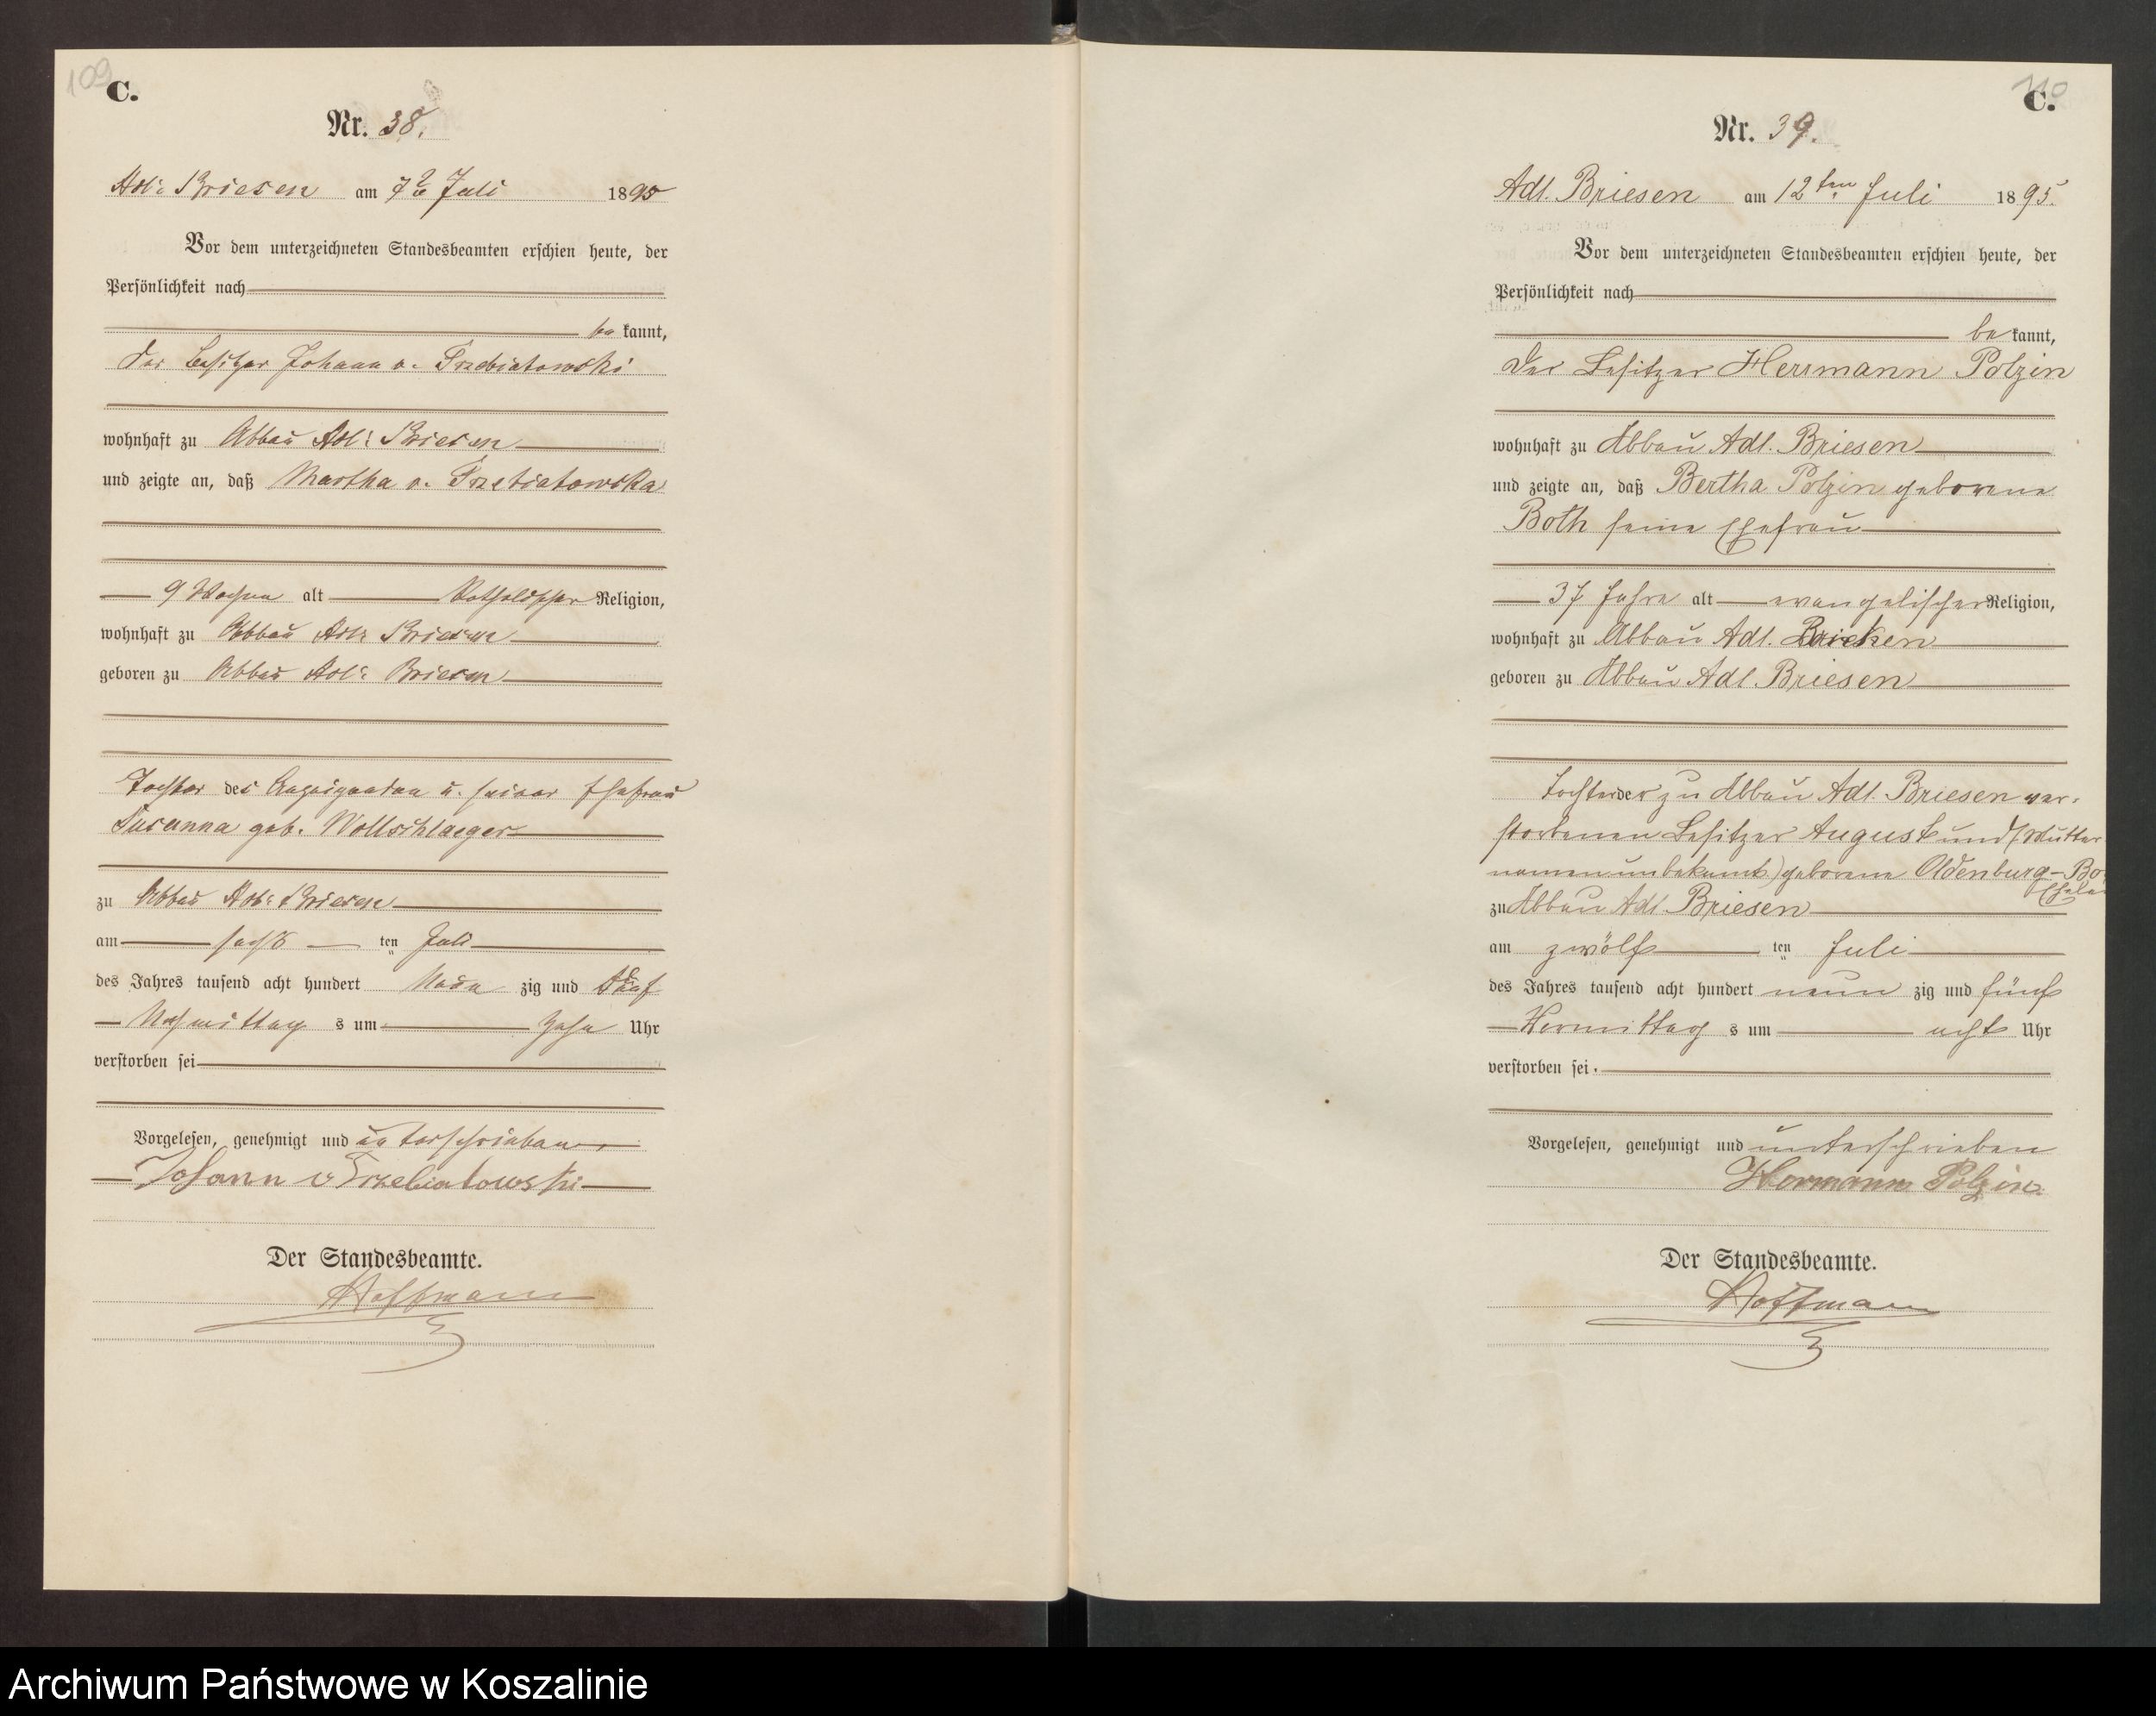 109
C.
Nr. 38.
Adl: Briesen am 7ten Juli 1895
Vor dem unterzeichneten Standesbeamten erschien heute, der
Persönlichkeit nach
be kannt,
der Besitzer Johann v. Trzebiatowski
wohnhaft zu Abbau Adl: Briesen
und zeigte an, daß Martha v. Trzebiatowska
9 Wochen alt katholischer Religion,
wohnhaft zu Abbau Adl: Briesen
geboren zu Abbau Adl: Briesen
Tochter des Anzeigenden u. seiner Ehefrau
Susanna geb. Wollschlaeger
zu Abbau Adl: Briesen
am sechs ten Juli
des Jahres tausend acht hundert Neun zig und fünf
Nachmittag s um Zehn Uhr
verstorben sei
Vorgelesen, genehmigt und unterschrieben,
Johann v Trzebiatowski
Der Standesbeamte.
Hoffmann
110
C.
Nr. 39.
Adl. Briesen am 12ten Juli 1895.
Vor dem unterzeichneten Standesbeamten erschien heute, der
Persönlichkeit nach
be kannt,
der Besitzer Herrmann Polzin
wohnhaft zu Abbau Adl. Briesen
und zeigte an, daß Bertha Polzin geborene
Both seine Ehefrau
37 Jahre alt evangelischer Religion,
wohnhaft zu Abbau Adl. Briesen
geboren zu Abbau Adl. Briesen
Tochter der zu Abbau Adl. Briesen ver-
storbenen Besitzer August und (Mutter
namen unbekannt) geborene Oldenburg - Bo
zu Abbau Adl. Briesen
am zwölf ten Juli
des Jahres tausend acht hundert neun zig und fünf
Vormittag s um acht Uhr
verstorben sei.
Vorgelesen, genehmigt und unterschrieben
Hermann Polzin.
Der Standesbeamte.
Hoffmann
Archiwum Państwowe w Koszalinie